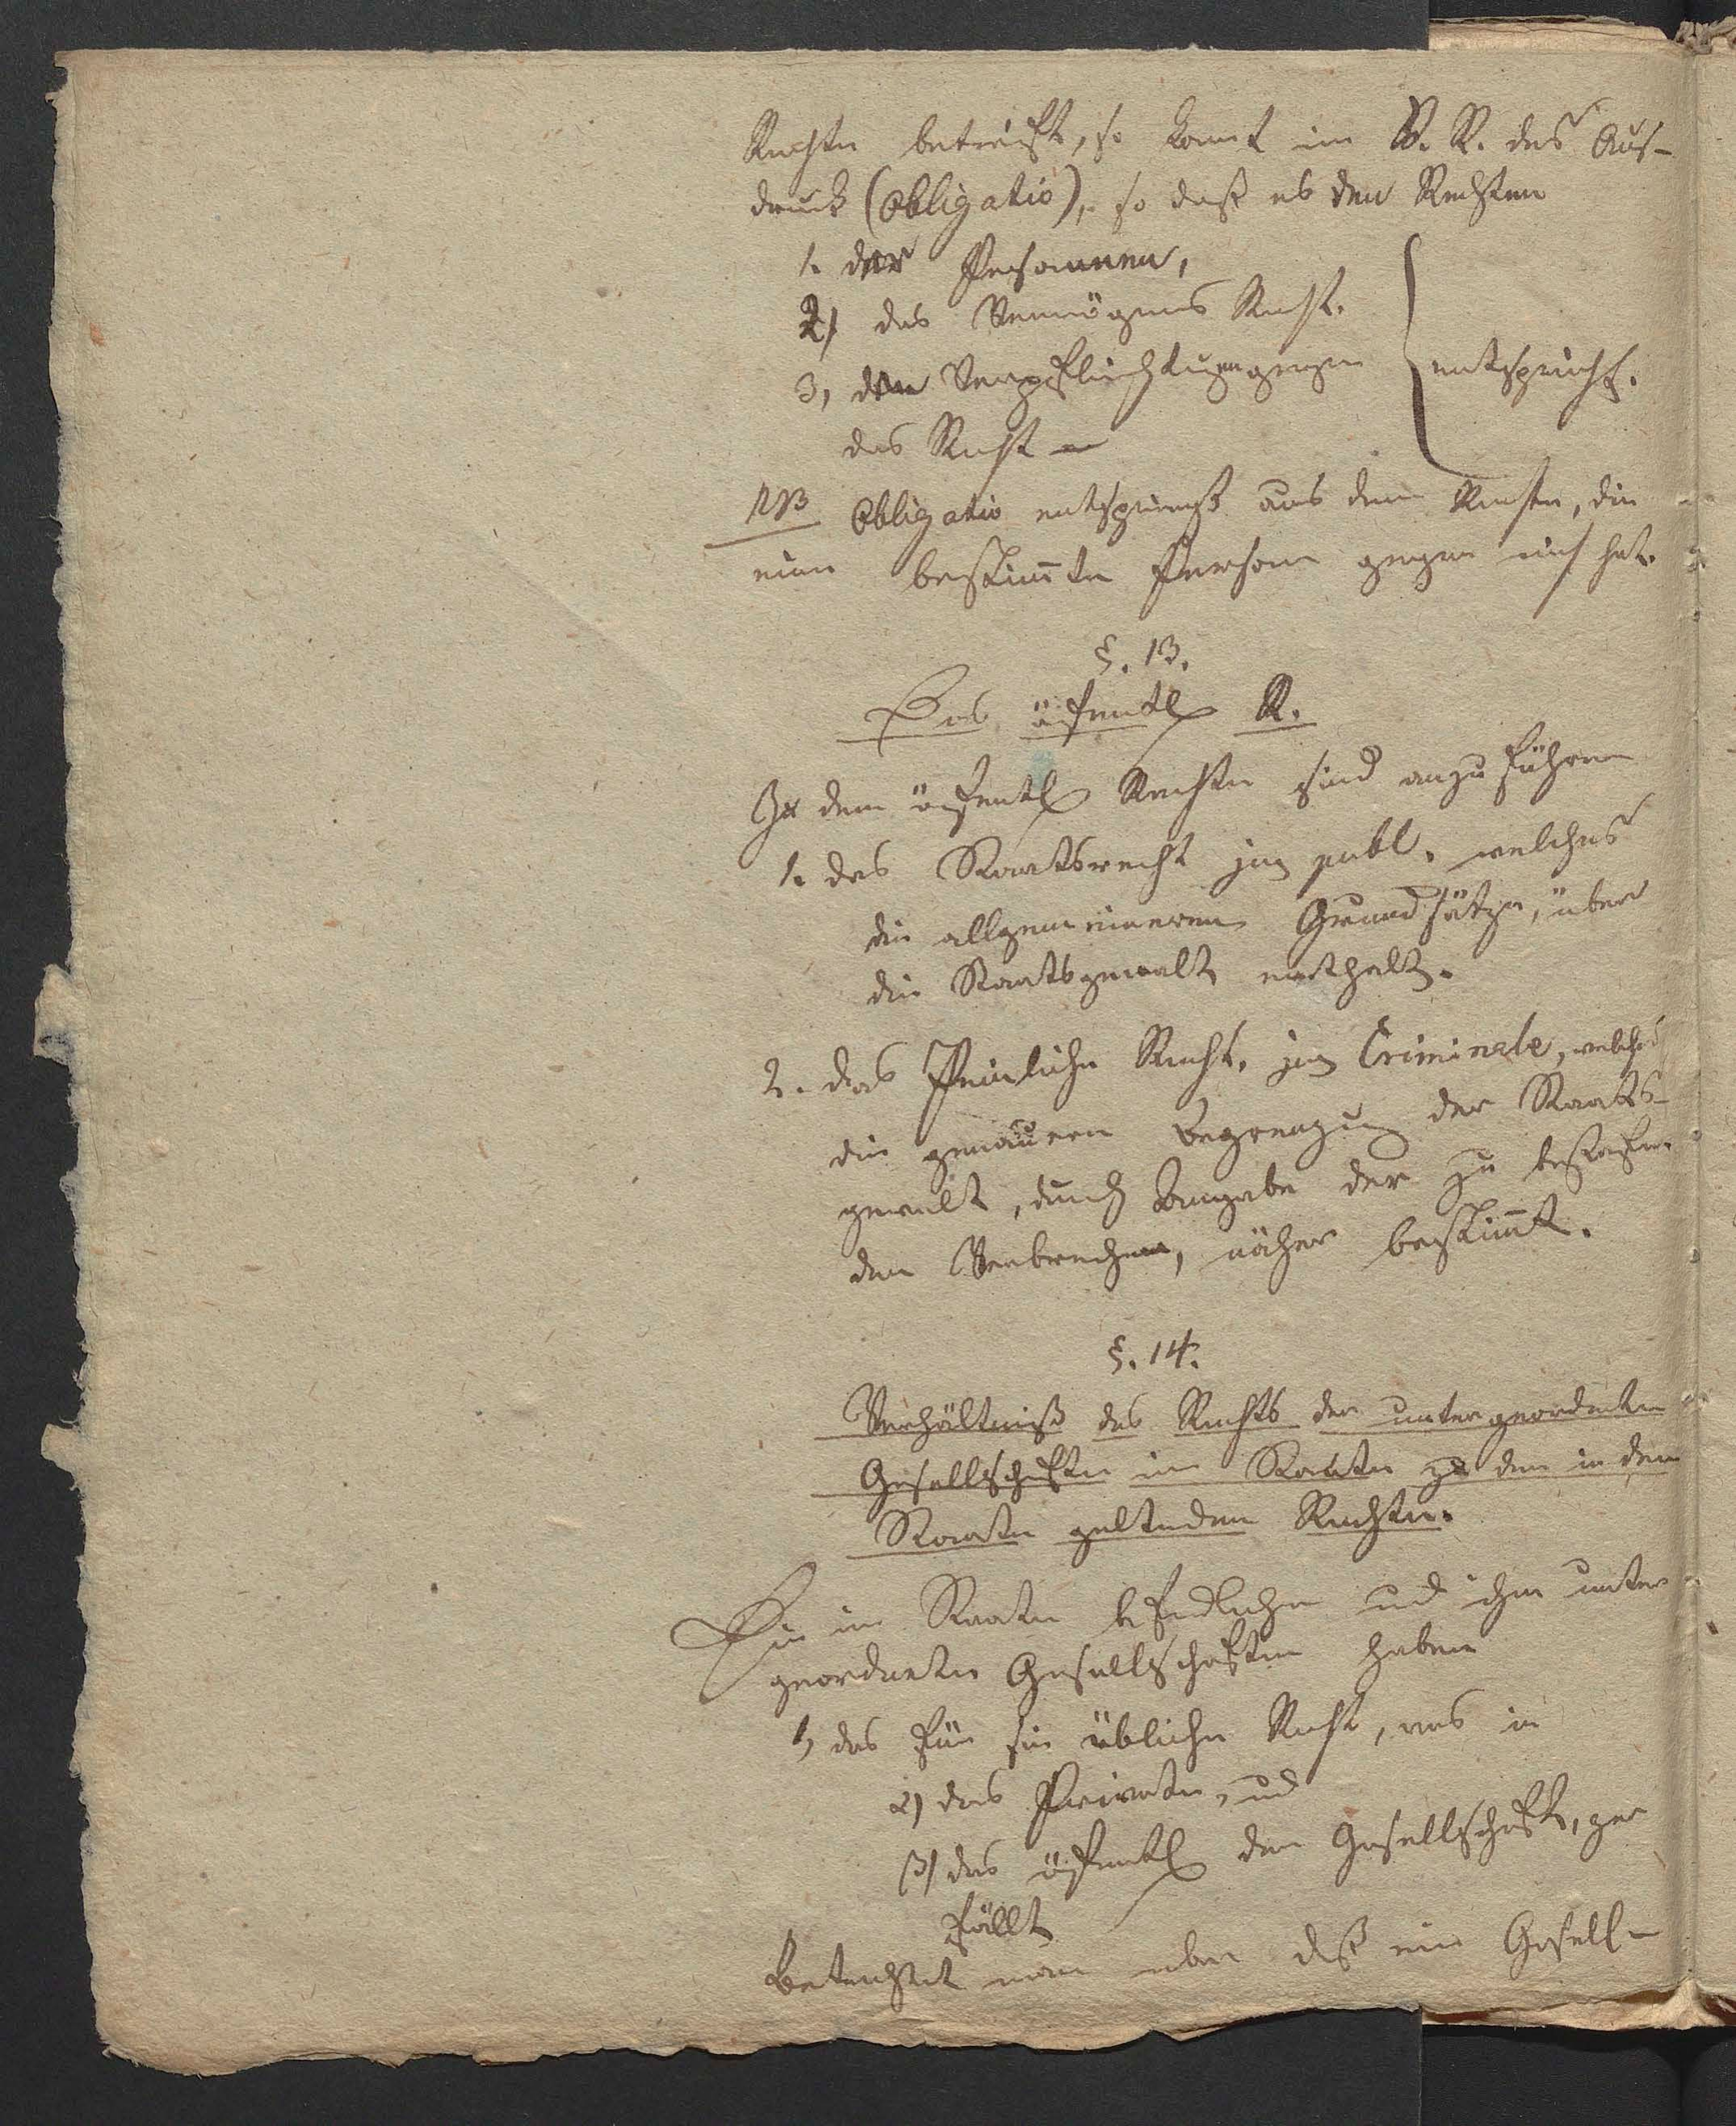 Rechte betrifft, so komt im R. R. der Aus-
druck (Obligatio), so daß es den Rechten
1. der Personnen,
2) das Vermögens Recht.
3, den Verpflichtungen gegen } entspricht.
das Recht
NB Obligatio entspringt aus dem Rechte, die
eine bestim̄te Person gegen mich hat.
§. 13.
Das öffentl R.
Zu dem öffentl Rechte sind anzuführen
1. das Staatsrecht jus publ. welches
die allgemeineren Grundsätze, über
die Staatsgewalt enthalt.
2. das Peinliche Recht. jus Criminale, welches
die genauern Begrenzung der Staats-
gewalt, durch Angabe der zu bestrafen-
den Verbrechen, näher bestim̄t.
§. 14.
Verhältniß des Rechts der untergeordneten
Gesellschaften im Staate zu dem in dem
Staate geltenden Rechte.
Die im Staate befindlichen und ihm unter
geordneten Gesellschaften haben
1, das für sie übliche Recht, was in
α) das Private, und
β) das öffentl der Gesellschaft, zer
fällt
Betrachtet man aber diß ein Gesell-